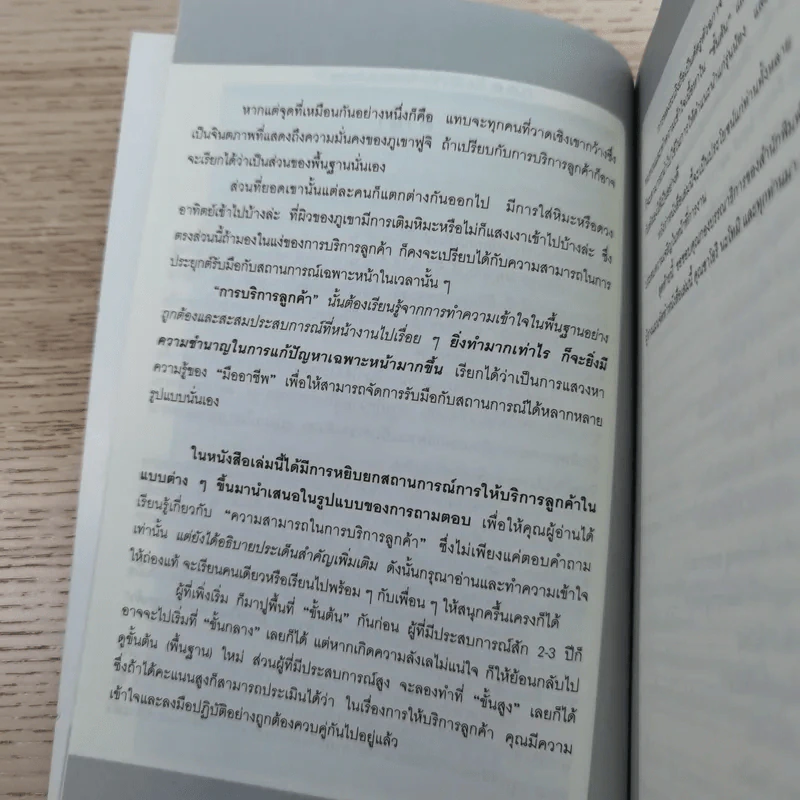 หากแต่จุดที่เหมือนกันอย่างหนึ่งก็คือ แทบจะทุกคนที่วาดเชิงเขากว้างซึ่ง
เป็นจินตภาพที่แสดงถึงความมั่นคงของภูเขาฟูจิ ถ้าเปรียบกับการบริการลูกค้าก็อาจ
จะเรียกได้ว่าเป็นส่วนของพื้นฐานนั่นเอง
ส่วนที่ยอดเขานั้นแต่ละคนก็แตกต่างกันออกไป มีการใส่หิมะหรือดวง
อาทิตย์เข้าไปบ้างล่ะ ที่ผิวของภูเขามีการเติมหิมะหรือไม่ก็แสงเงาเข้าไปบ้างล่ะ ซึ่ง
ตรงส่วนนี้ถ้ามองในแง่ของการบริการลูกค้า ก็คงจะเปรียบได้กับความสามารถในการ
ประยุกต์รับมือกับสถานการณ์เฉพาะหน้าในเวลานั้น ๆ
"การบริการลูกค้า" นั้นต้องเรียนรู้จากการทำความเข้าใจในพื้นฐานอย่าง
ถูกต้องและสะสมประสบการณ์ที่หน้างานไปเรื่อย ๆ ยิ่งทำมากเท่าไร ก็จะยิ่งมี
ความชำนาญในการแก้ปัญหาเฉพาะหน้ามากขึ้น เรียกได้ว่าเป็นการแสวงหา
ความรู้ของ "มืออาชีพ" เพื่อให้สามารถจัดการรับมือกับสถานการณ์ได้หลากหลาย
รูปแบบนั่นเอง
ในหนังสือเล่มนี้ได้มีการหยิบยกสถานการณ์การให้บริการลูกค้าใน
แบบต่าง ๆ ขึ้นมานำเสนอในรูปแบบของการถามตอบ เพื่อให้คุณผู้อ่านได้
เรียนรู้เกี่ยวกับ "ความสามารถในการบริการลูกค้า" ซึ่งไม่เพียงแค่ตอบคำถาม
เท่านั้น แต่ยังได้อธิบายประเด็นสำคัญเพิ่มเติม ดังนั้นกรุณาอ่านและทำความเข้าใจ
ให้ถ่องแท้ จะเรียนคนเดียวหรือเรียนไปพร้อม ๆ กับเพื่อน ๆ ให้สนุกครื้นเครงก็ได้
ผู้ที่เพิ่งเริ่ม ก็มาปูพื้นที่ "ขั้นต้น" กันก่อน ผู้ที่มีประสบการณ์สัก 2-3 ปีก็
อาจจะไปเริ่มที่ "ขั้นกลาง" เลยก็ได้ แต่หากเกิดความลังเลไม่แน่ใจ ก็ให้ย้อนกลับไป
ดูขั้นต้น (พื้นฐาน) ใหม่ ส่วนผู้ที่มีประสบการณ์สูง จะลองทำที่ "ขั้นสูง" เลยก็ได้
ซึ่งถ้าได้คะแนนสูงก็สามารถประเมินได้ว่า ในเรื่องการให้บริการลูกค้า คุณมีความ
เข้าใจและลงมือปฏิบัติอย่างถูกต้องควบคู่กันไปอยู่แล้ว